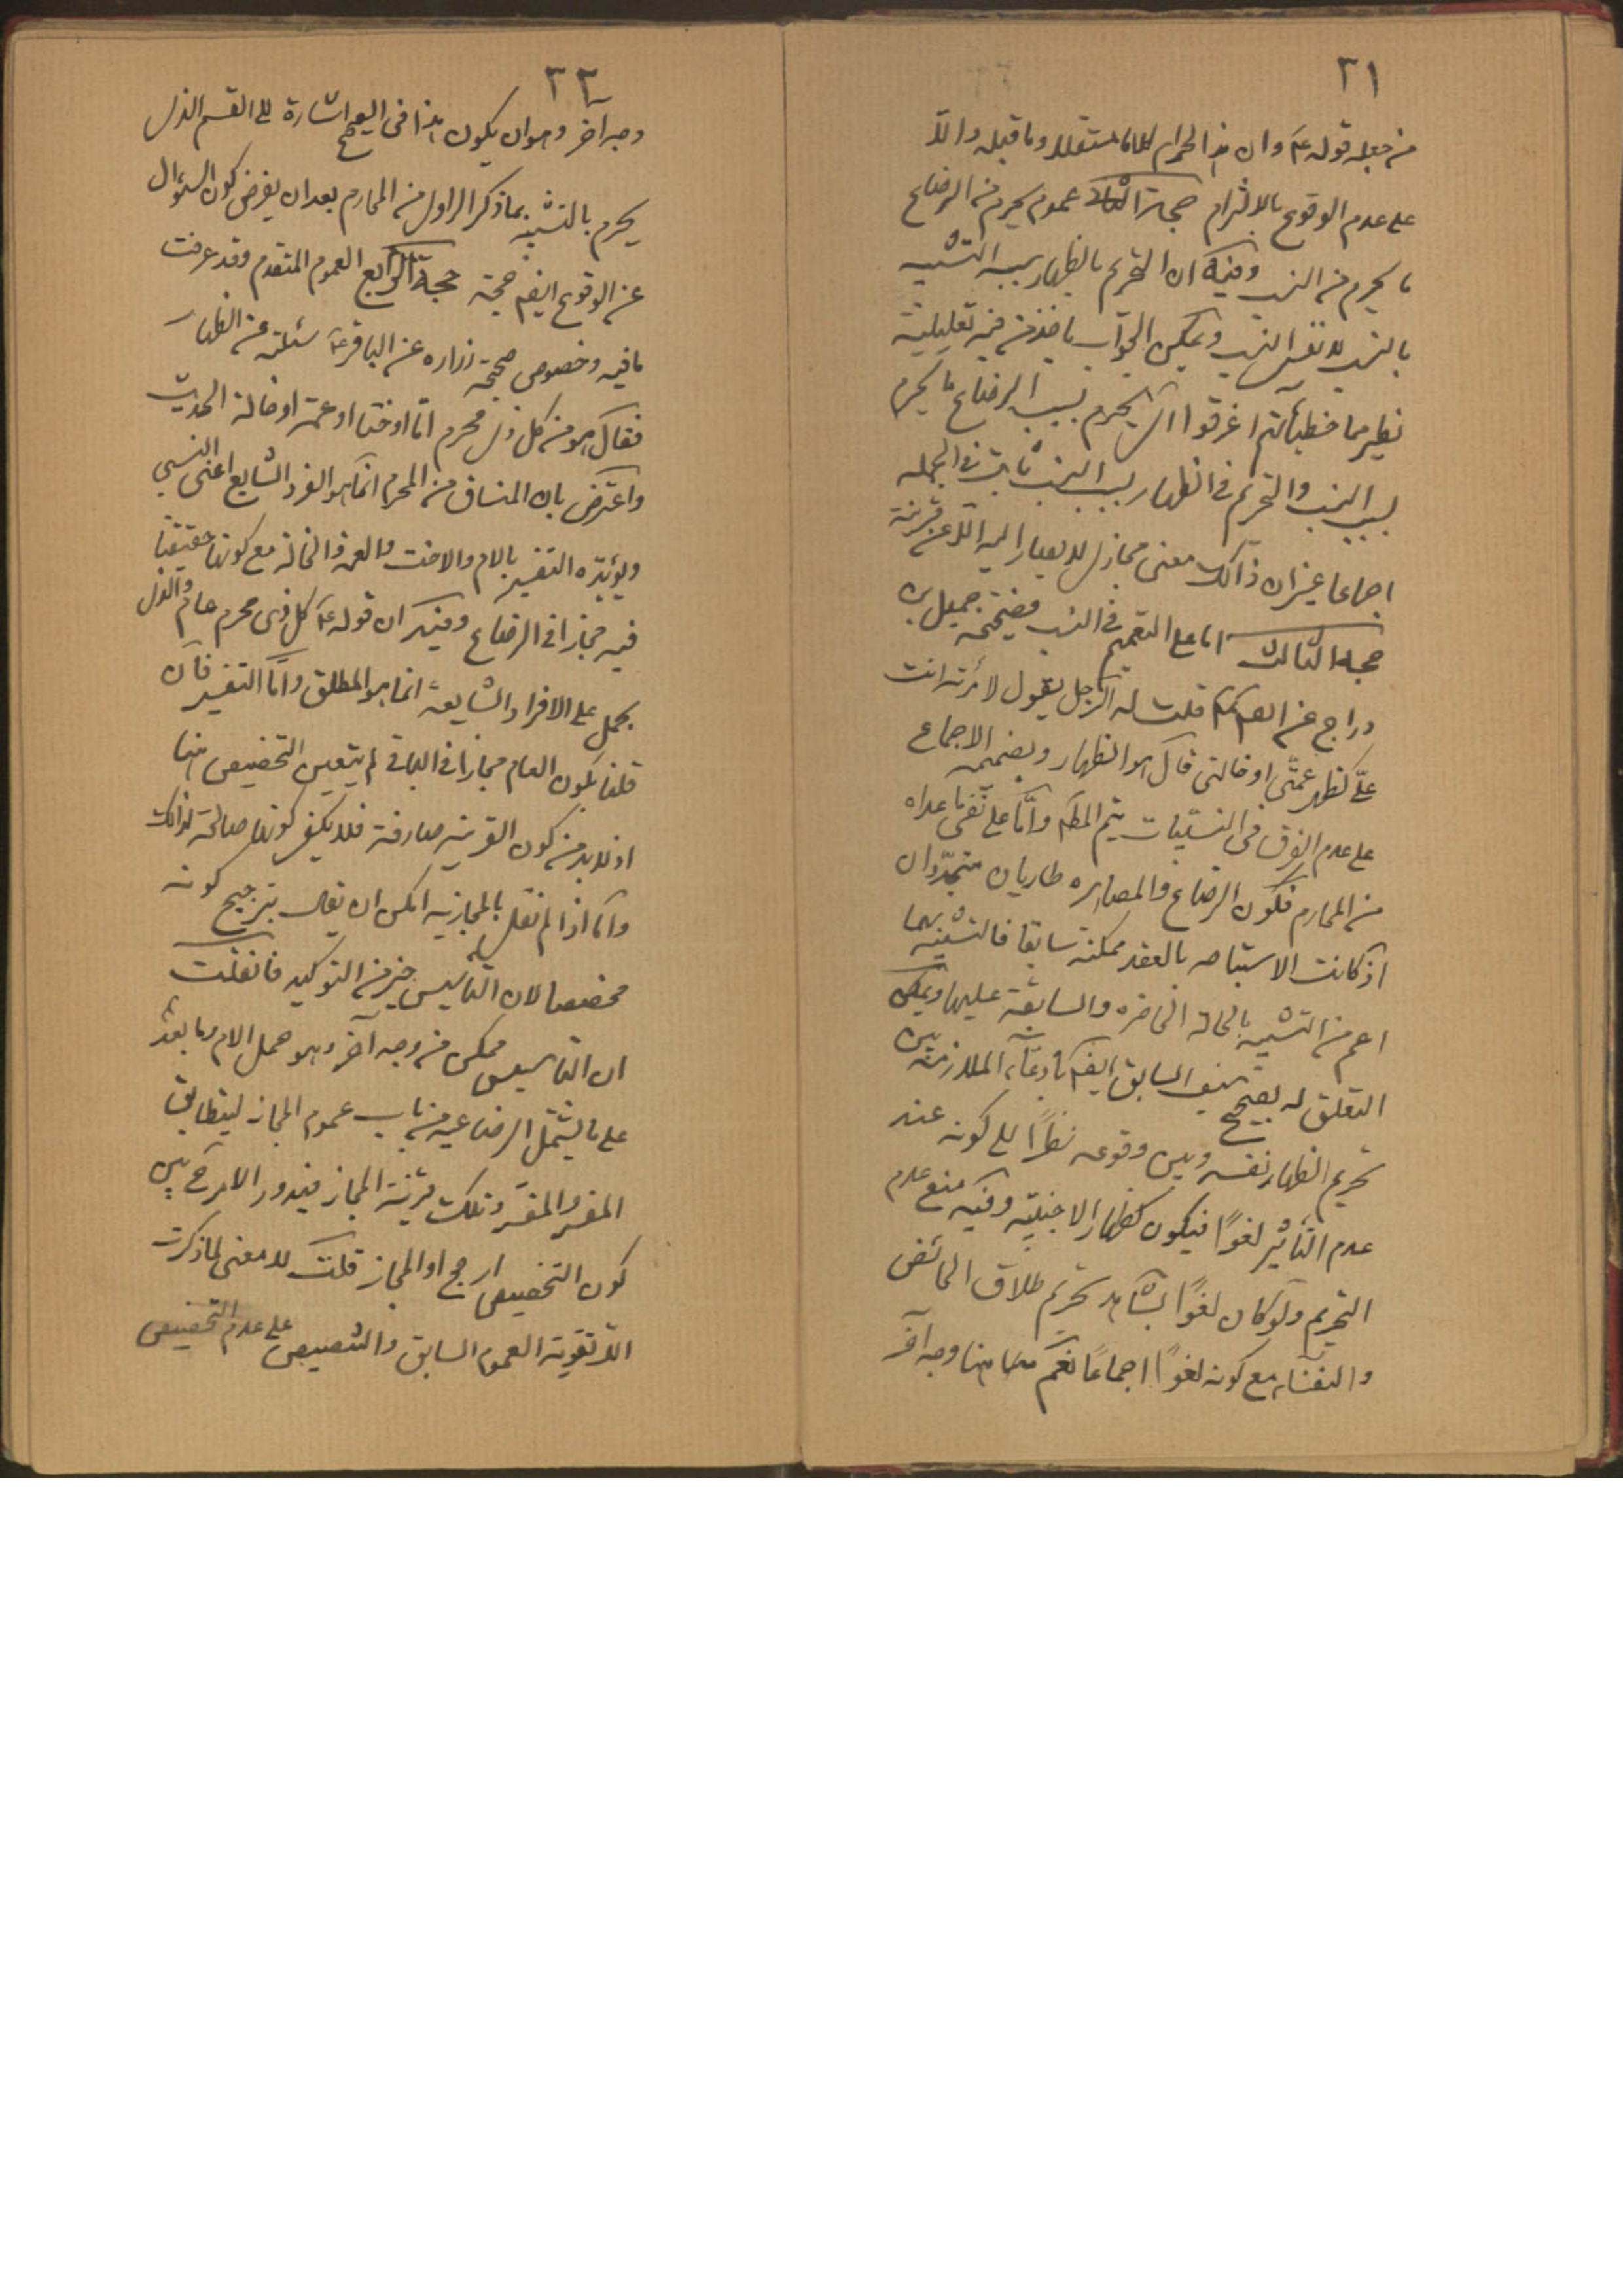 ٢١
من جعله قوله ع وان هذا لحرام كلاما مستقلا وما قبله دالا
على عدم الوقوع بالالتزام حجة الثانى عموم يحرم من الرضاع
ما يحرم من النسب وفيه ان التحريم بالظهار بسبب التشبيه
بالنسب لا نفس النسب ويمكن الجواب باخذ من فيه تعليلية
نظير مما خطيئاتهم اغرقوا اى يحرم بسبب الرضاع ما يحرم
بسبب النسب والتحريم فى الظهار بسبب النسب ثابت فى الجمله
اجماعا غير ان ذلك معنى مجازى لا يصار اليه الا عن قرينة
حجة الثالث اما على التعميم فى النسب فصحيحه جميل بن
دراج عن الصم قلت له الرجل يقول لامرئته انت
علىّ كظهر عمتى او خالتى قال هو الظهار وبضميمه الاجماع
على عدم الفرق فى النسبيات يتم المط واما على نفى ما عداه
من المحارم فلكون الرضاع والمصاهره طاريان متجددان
اذ كانت الاستباحه بالعقد ممكنة سابقا فالتشبيه بهما
اعم من التشبيه بالحالة الحاضره والسابقة عليها ويمكن
التعلق له بصحيح سيف السابق ايضا بادعاء الملازمة بين
تحريم الظهار نفسه وبين وقوعه نظرًا الى كونه عند
عدم التأثير لغوًا فيكون كظهار الاجنبيّه وفيه منع عدم
التحريم ولو كان لغوًا بشاهد تحريم طلاق الحائض
والنفساء مع كونه لغوًا اجماعًا نعم هنا وجه آخر
٢٢
وجه آخر وهو ان يكون هذا فى الصحيح اشارة الى القسم الذى
يحرم بالتشبيه بما ذكر الراوى من المحارم بعد ان يفرض كون السؤال
عن الوقوع ايضا حجة الرابع العموم المتقدم وقد عرفت
ما فيه وخصوص صحيحة زراره عن الباقر ع سئلته عن الظهار
فقال هو من كل ذى محرم امّا او اختا او عمة او خالة الحديث
واعترض بان المنساق من المحرم انما هو الفرد الشايع اعنى النسبى
ويؤيّده التفسير بالام والاخت والعمه والخالة مع كونها حقيقيا
فيه مجازا فى الرضاع وفيه ان قوله ع كل ذى محرم عام والذى
يحمل على الافراد الشايعة انما هو المطلق وامّا التفسير فان
قلنا بكون العام مجازا فى الباقى لم يتعين التخصيص هنا
اذ لابد من كون القرينه صارفة فلا يكفى كونها صالحة لذلك
واما اذا لم نقل بالمجازيه امكن ان يقال بترجيح كونه
مخصصا لان التاسيس خير من التوكيد فان قلت
ان التاسيس ممكن من وجه آخر وهو حمل الام وما بعدها
على ما يشمل الرضاعيه من باب عموم المجاز ليتطابق
المفسِر والمفسَر وتلك قرينة المجاز فيدور الامر ح بين
كون التخصيص ارجح او المجاز قلت لا معنى لما ذكرت
الا تقوية العموم السابق والتنصيص على عدم التخصيص